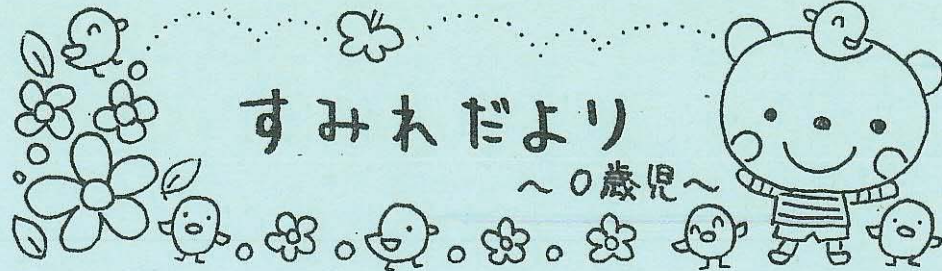 すみれだより
～0歳児～